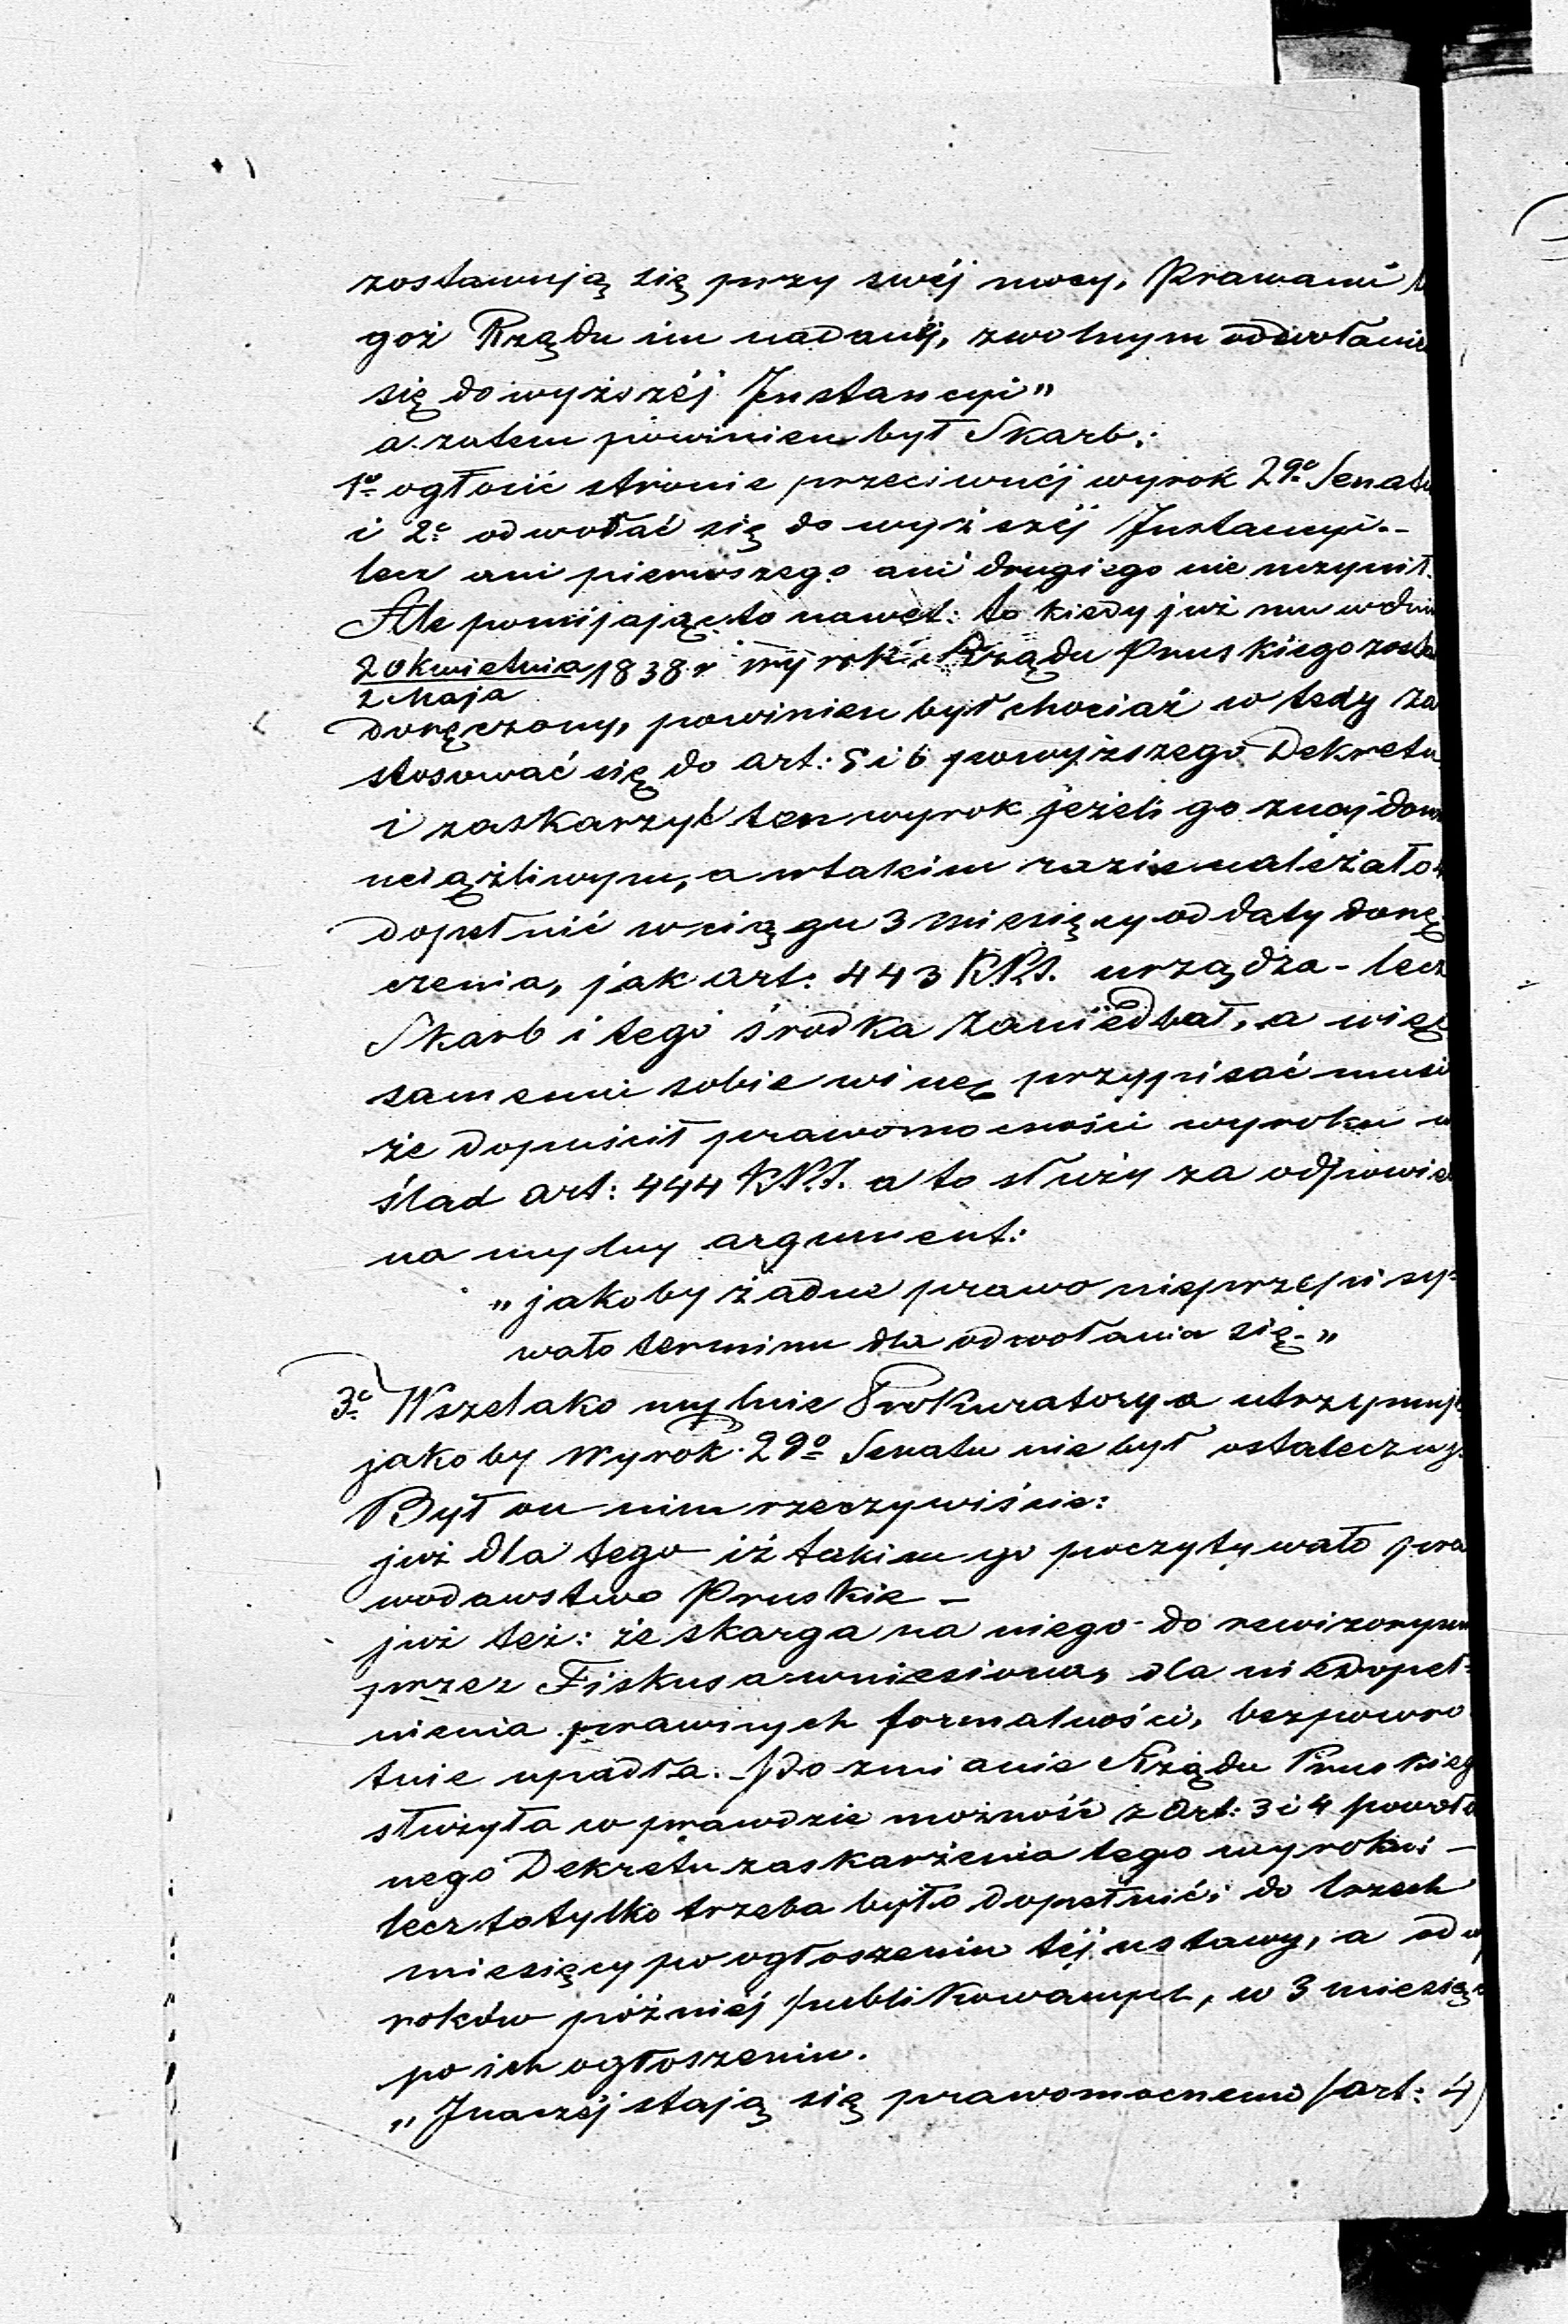 zostawują się przy swéj mocy, Prawami
goż Rządu im nadanéj, zwolnym odwołanie
się do wyższéj Instancyi"
a zatem powinien był Skarb:
1º ogłosić stronie przeciwnéj wyrok 2go Senatu
i 2º odwołać się do wyższéj Instancyi.-
lecz ani pierwszego ani drugiego nie uczynił.
Ale pomijając to nawet: to kiedy już mu w dniu
20 kwietnia 1838 r wyrok Rządu Pruskiego zosta
2 Maja
doręczony, powinien był chociaż wtedy za
stosować się do art: 5 i 6 powyższego Dekretu
i zaskarzyć ten wyrok jeżeli go znajdow
uciążliwym, a wtakim razie należało
dopełnić wciągu 3 miesięcy od daty dorę
czenia, jak art: 443 K.P.S. urządza - lecz
Skarb i tego środka zaniedbał, a więc
samemu sobie winę przypisać musi
że dopuścił prawomocności wyroku w
ślad art: 444 K.P.S. a to służy za odpowie
na mylny argument:
„jakoby żadne prawo nieprzepisy-
wało terminu dla odwołania się."
3º Wszelako mylnie Prokuratorya utrzymuje
jakoby Wyrok 2go Senatu nie był ostatecznym
Był on nim rzeczywiście:
już dla tego iż takim go poczytywało pra
wodawstwo Pruskie –
już też: że skarga na niego do rewizoryum
przez Fiskusa wniesiona, dla niedopeł-
nienia prawnych formalności, bezpowro
tnie upadła. - Po zmianie Rządu Pruskieg
służyła wprawdzie możność z Art: 3 i 4 powoła
nego Dekretu zaskarżenia tego wyroku: –
lecz to tylko trzeba było dopełnić: do trzech
miesięcy po ogłoszeniu téj ustawy, a od wy
roków późniéj publikowanych, w 3 miesiące
po ich ogłoszeniu.
„Inaczéj stają się prawomocnemi (art: 4)